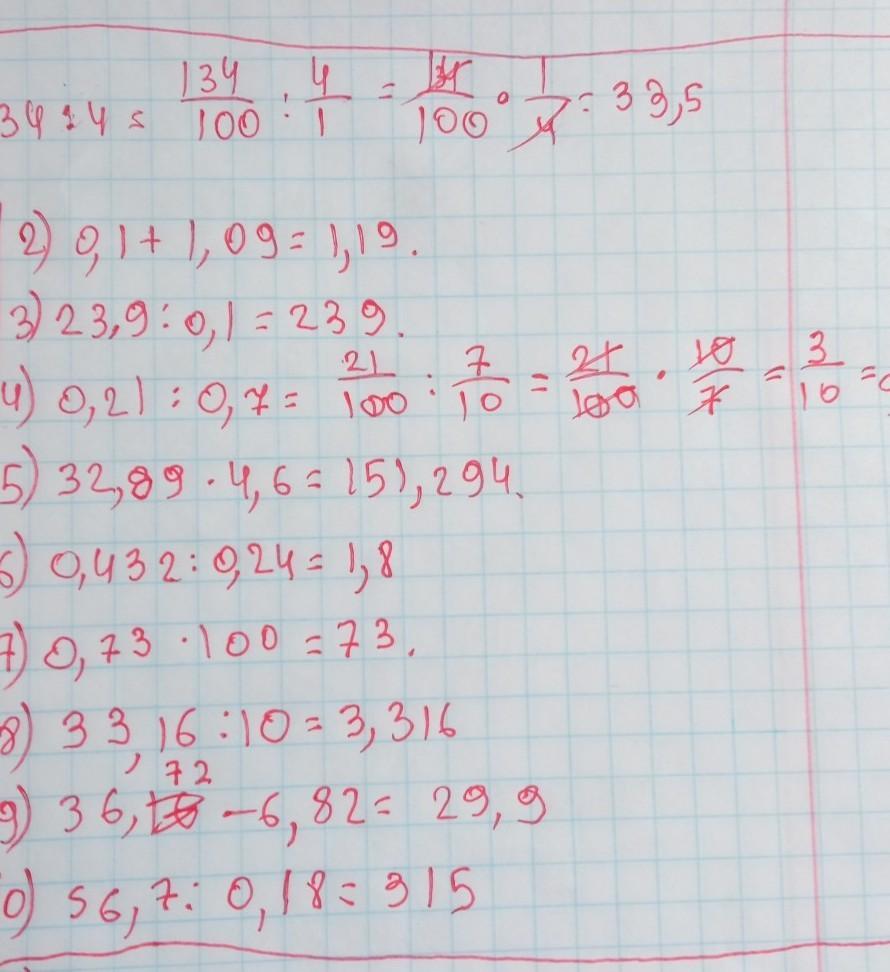 34 : 4 = 134/100 : 4/1 = 134/100 · 1/4 = 33,5
2) 0,1 + 1,09 = 1,19.
3) 23,9 : 0,1 = 239.
4) 0,21 : 0,7 = 21/100 : 7/10 = 21/100 · 10/7 = 3/10 =
5) 32,89 · 4,6 = 151,294.
6) 0,432 : 0,24 = 1,8
7) 0,73 · 100 = 73.
8) 33,16 : 10 = 3,316
9) 36,72 - 6,82 = 29,9
0) 56,7 : 0,18 = 315